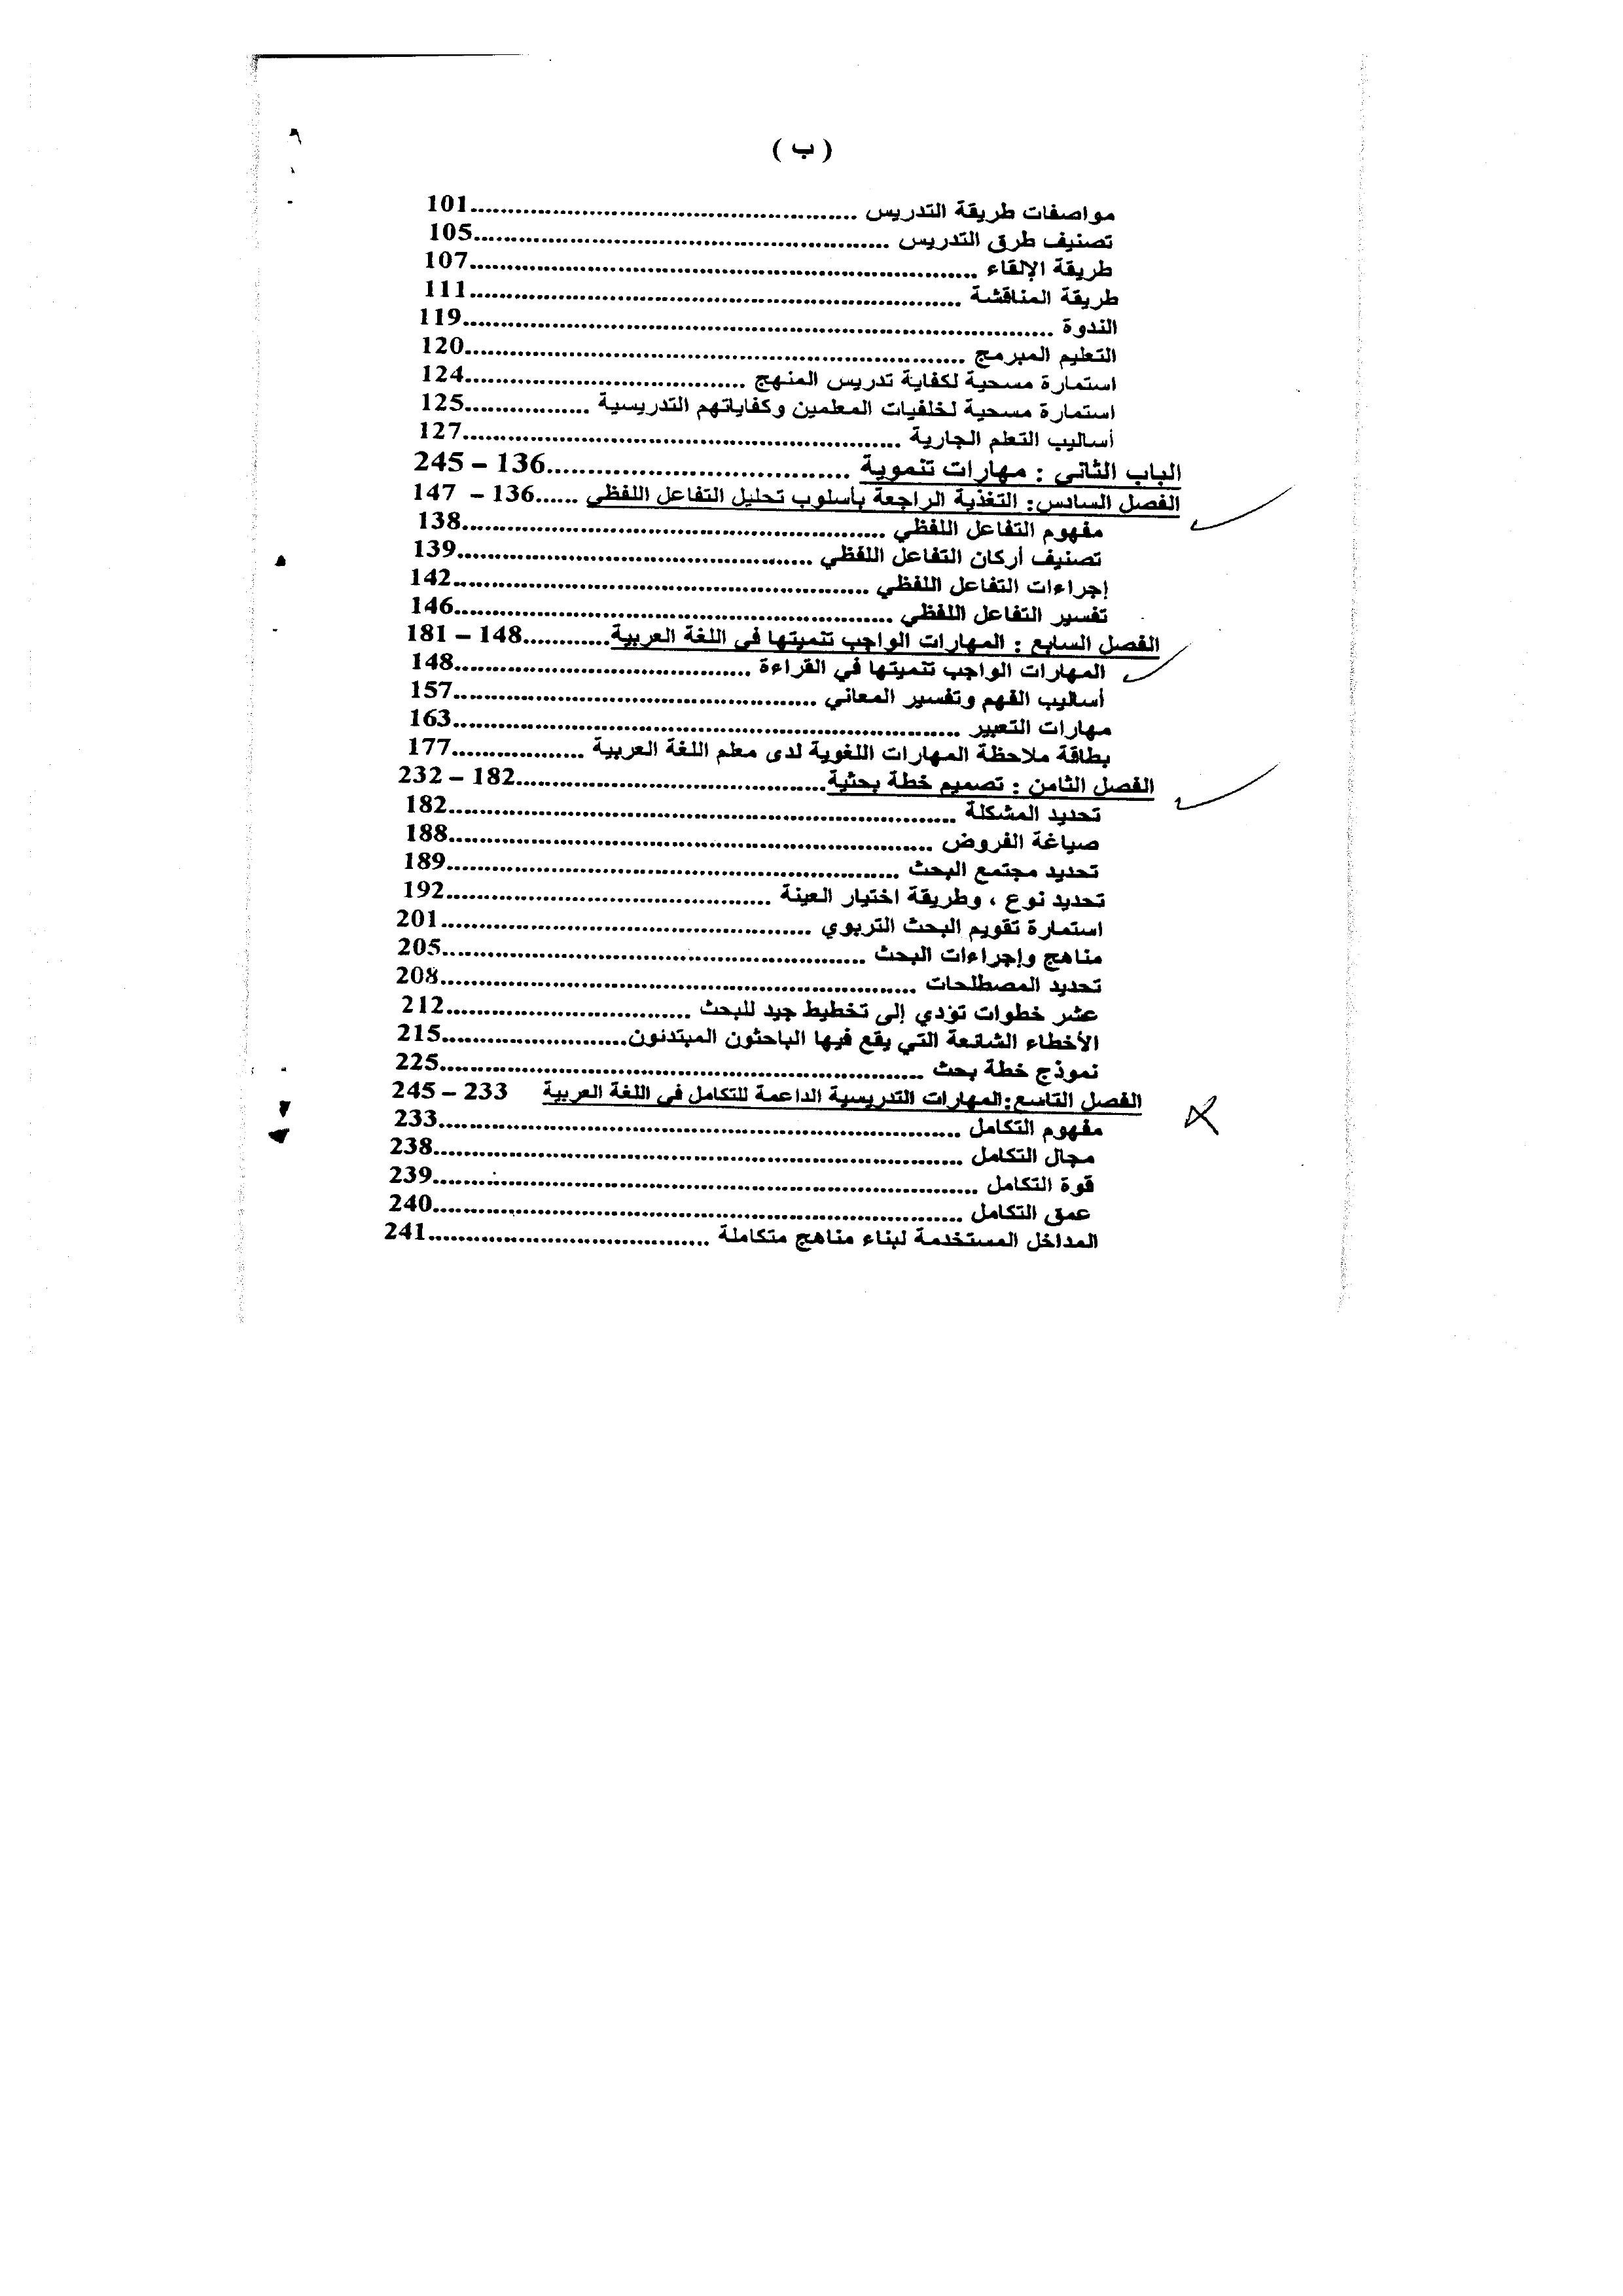 ( ب )
مواصفات طريقة التدريس ......................................................101
تصنيف طرق التدريس ......................................................105
طريقة الإلقاء ......................................................107
طريقة المناقشة ......................................................111
الندوة ......................................................119
التعليم المبرمج ......................................................120
استمارة مسحية لكفاية تدريس المنهج ......................................124
استمارة مسحية لخلفيات المعلمين وكفاياتهم التدريسية .................125
أساليب التعلم الجارية ......................................................127
الباب الثاني : مهارات تنموية ......................................136 – 245
الفصل السادس: التغذية الراجعة بأسلوب تحليل التفاعل اللفظي ......136 – 147
مفهوم التفاعل اللفظي ......................................................138
تصنيف أركان التفاعل اللفظي ..............................................139
إجراءات التفاعل اللفظي ......................................................142
تفسير التفاعل اللفظي ......................................................146
الفصل السابع : المهارات الواجب تنميتها في اللغة العربية...........148 – 181
المهارات الواجب تنميتها في القراءة ......................................148
أساليب الفهم وتفسير المعاني ..............................................157
مهارات التعبير ......................................................163
بطاقة ملاحظة المهارات اللغوية لدى معلم اللغة العربية .................177
الفصل الثامن : تصميم خطة بحثية......................................182 – 232
تحديد المشكلة ......................................................182
صياغة الفروض ......................................................188
تحديد مجتمع البحث ......................................................189
تحديد نوع ، وطريقة اختيار العينة ......................................192
استمارة تقويم البحث التربوي ..............................................201
مناهج وإجراءات البحث ......................................................205
تحديد المصطلحات ......................................................208
عشر خطوات تؤدي إلى تخطيط جيد للبحث ................................212
الأخطاء الشائعة التي يقع فيها الباحثون المبتدئون........................215
نموذج خطة بحث ......................................................225
الفصل التاسع:المهارات التدريسية الداعمة للتكامل في اللغة العربية 233 – 245
مفهوم التكامل ......................................................233
مجال التكامل ......................................................238
قوة التكامل ......................................................239
عمق التكامل ......................................................240
المداخل المستخدمة لبناء مناهج متكاملة ......................................241